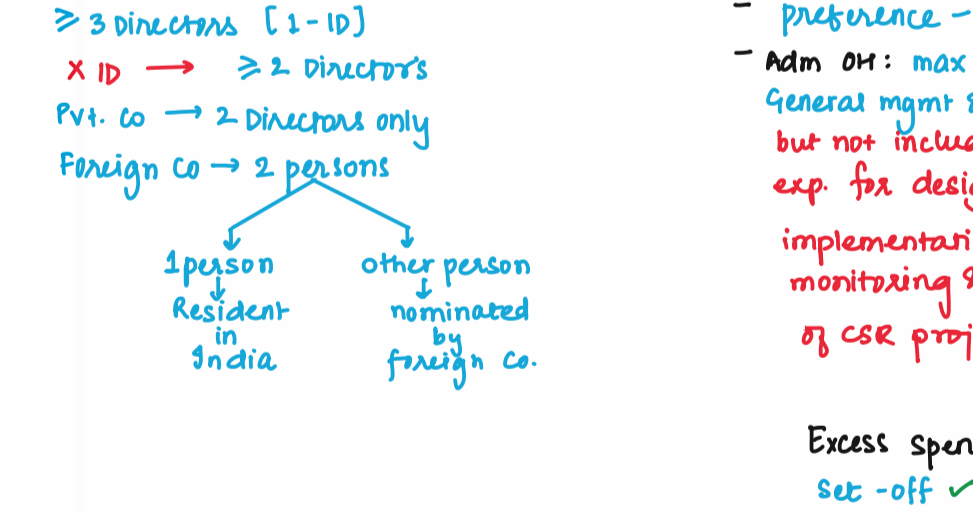 ≥ 3 Directors [1-ID]
X ID → ≥ 2 Directors
Pvt. Co → 2 Directors only
Foreign Co → 2 persons
1 person
↓
Resident
in
India
other person
↓
nominated
by
foreign Co.
- preference -
- Adm OH: max
General mgmt &
but not includ
exp. for desig
implementati
monitoring &
of CSR proj
Excess spen
Set-off ✓